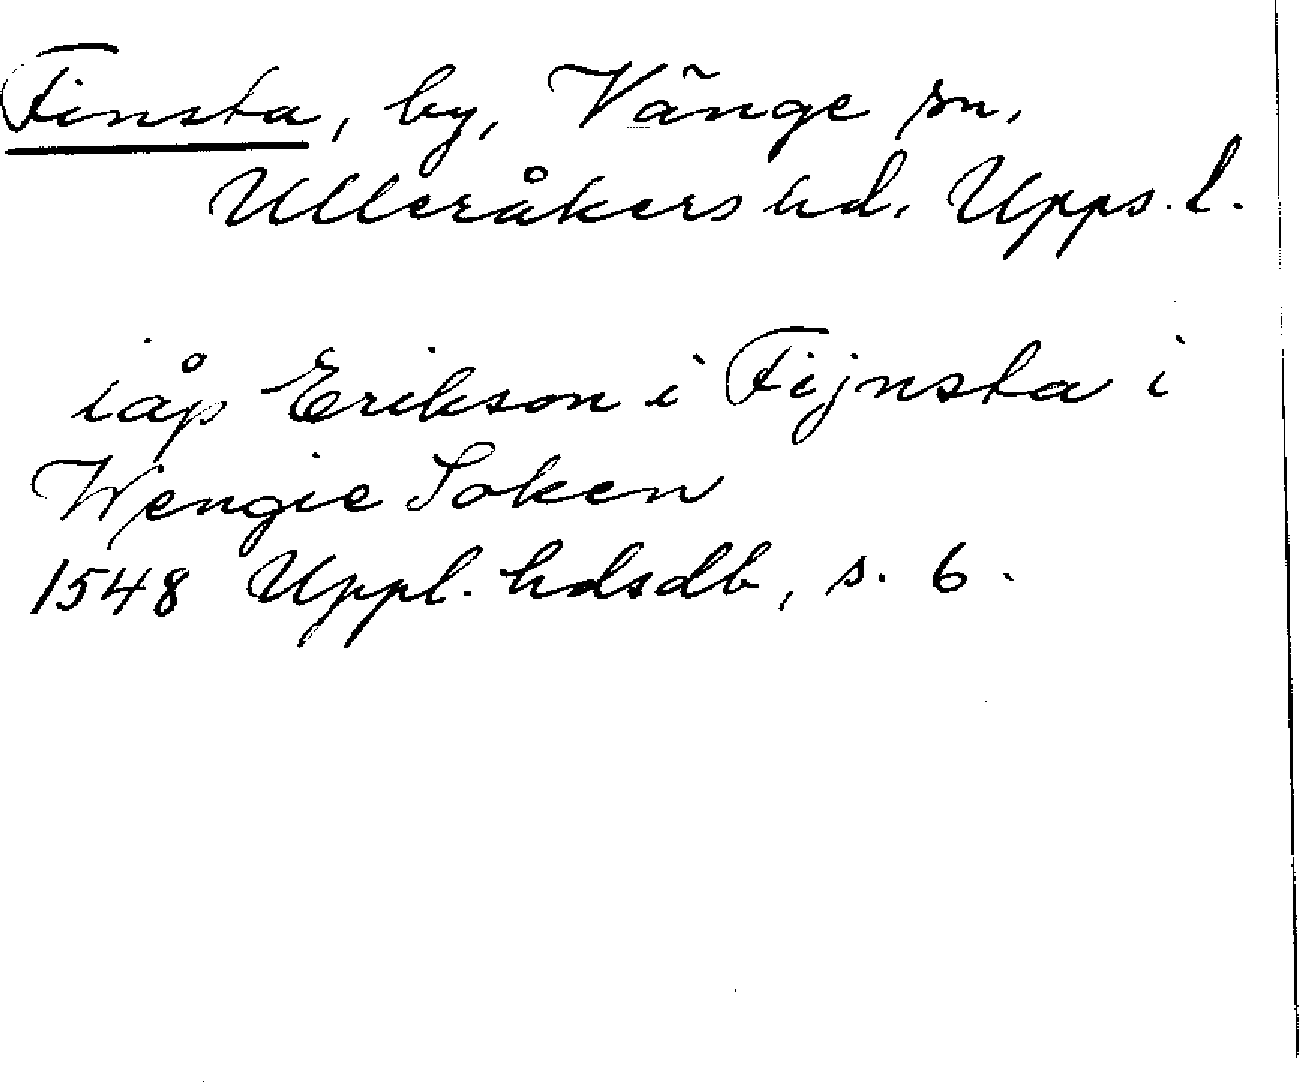 Finsta, by, Vänge sn,
Ulleråkers hd. Upps. l.
iåp Erikson i Fijnsta i
Wengie Soken
1548 Uppl. hdsdb, s. 6.